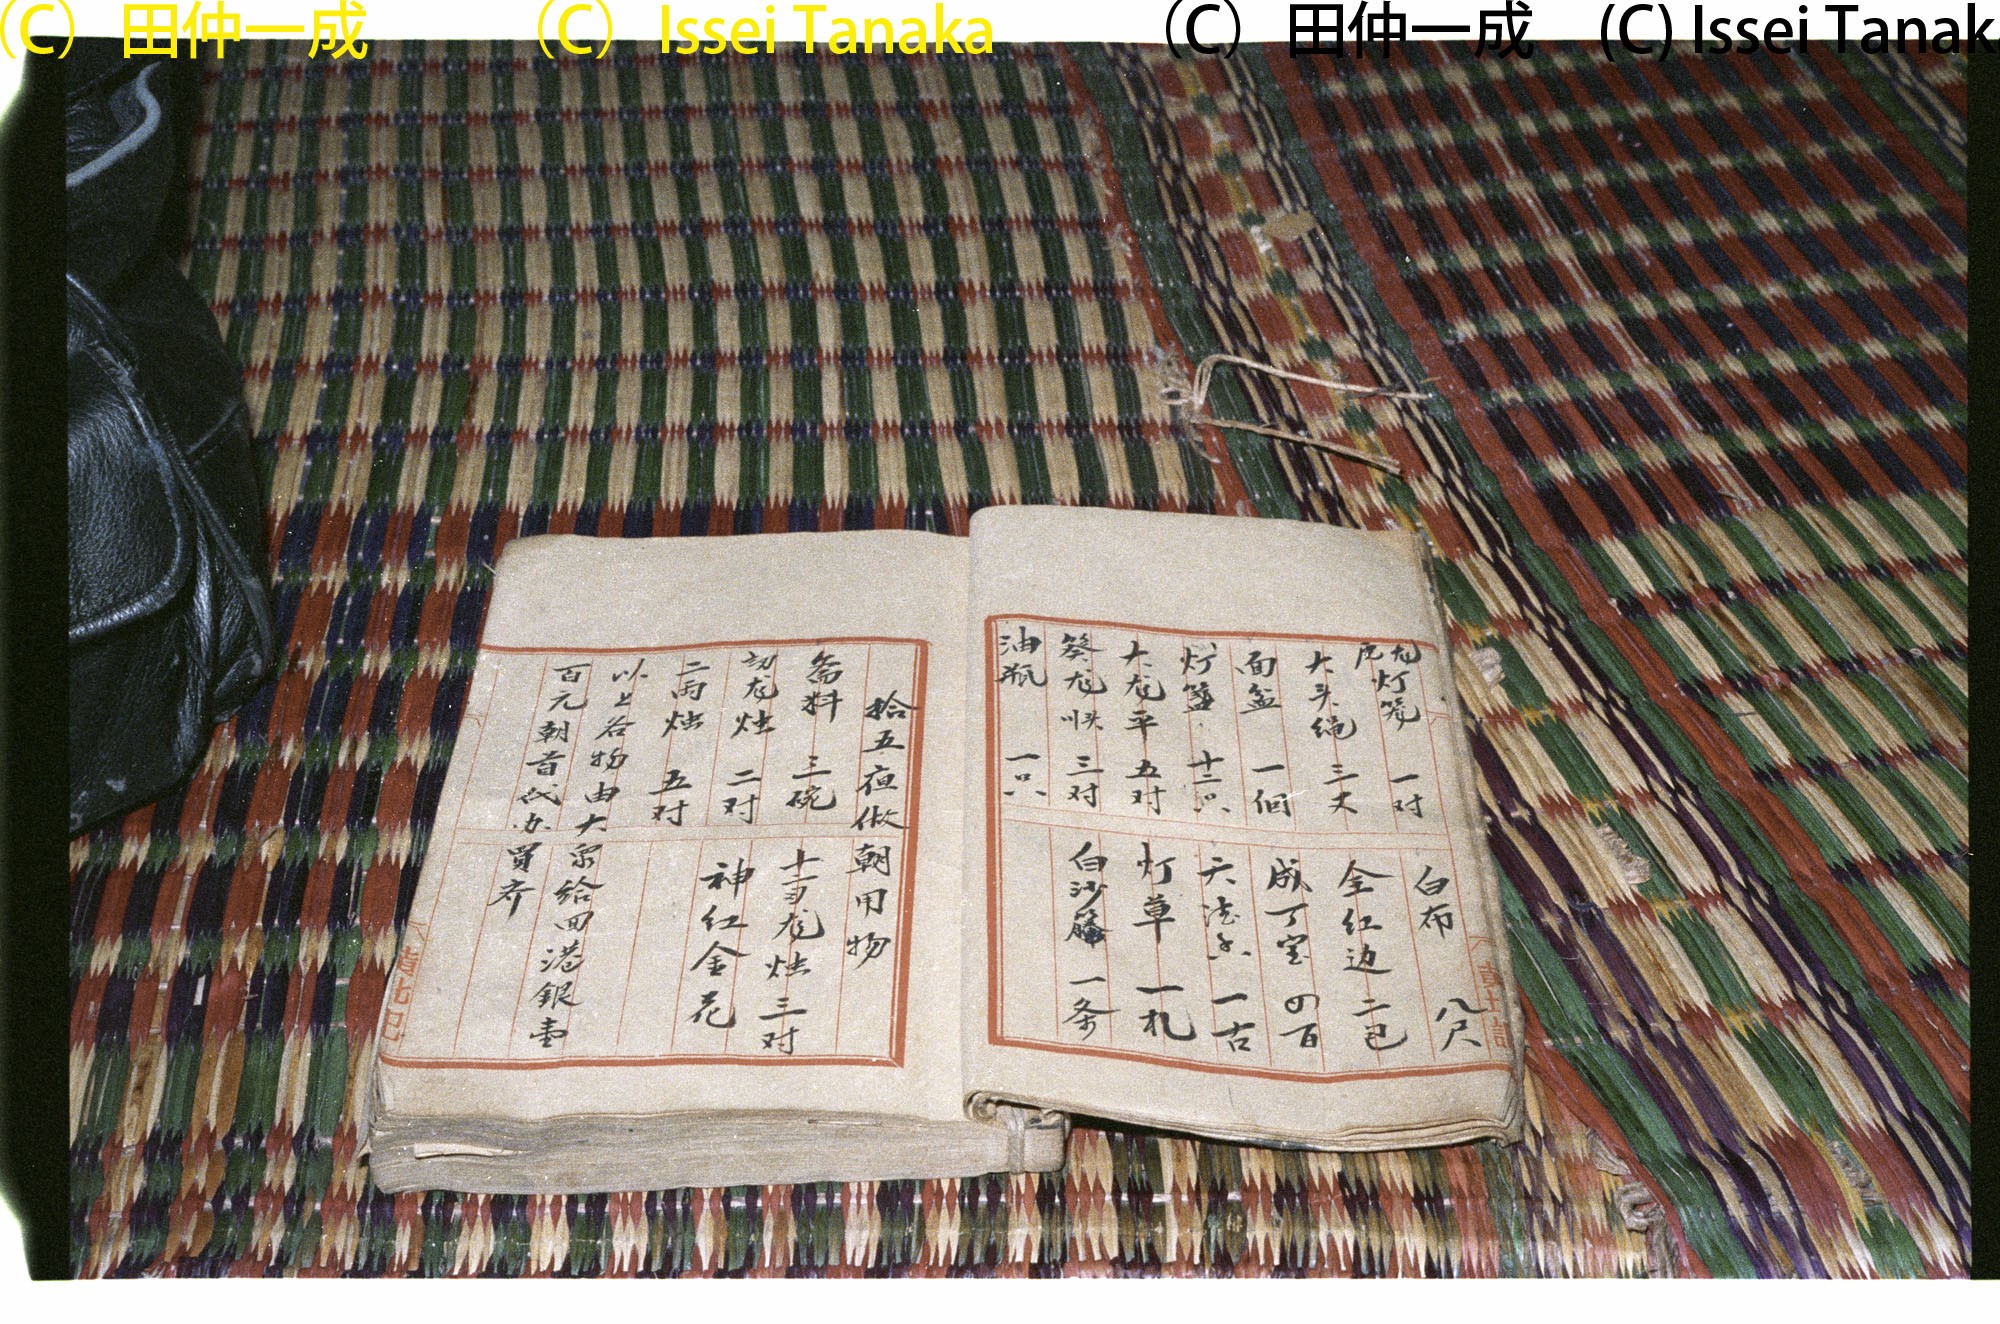 (C) 田仲一成 (C) Issei Tanaka (C) 田仲一成 (C) Issei Tanaka
虎龙灯笼 一对
白布 八尺
大斗绳 三丈
金红边 二包
面盆 一個
成丁宝 四百
灯盏 十二只
一古
大龙平 五对
灯草 一札
三对
白沙 一条
油瓶 一只
拾五夜做朝用物
斋料 三碗
龙烛 三对
龙烛 二对
神红金花
二両烛 五对
以上各物由大衆給回港銀壹
百元朝首代办買齐